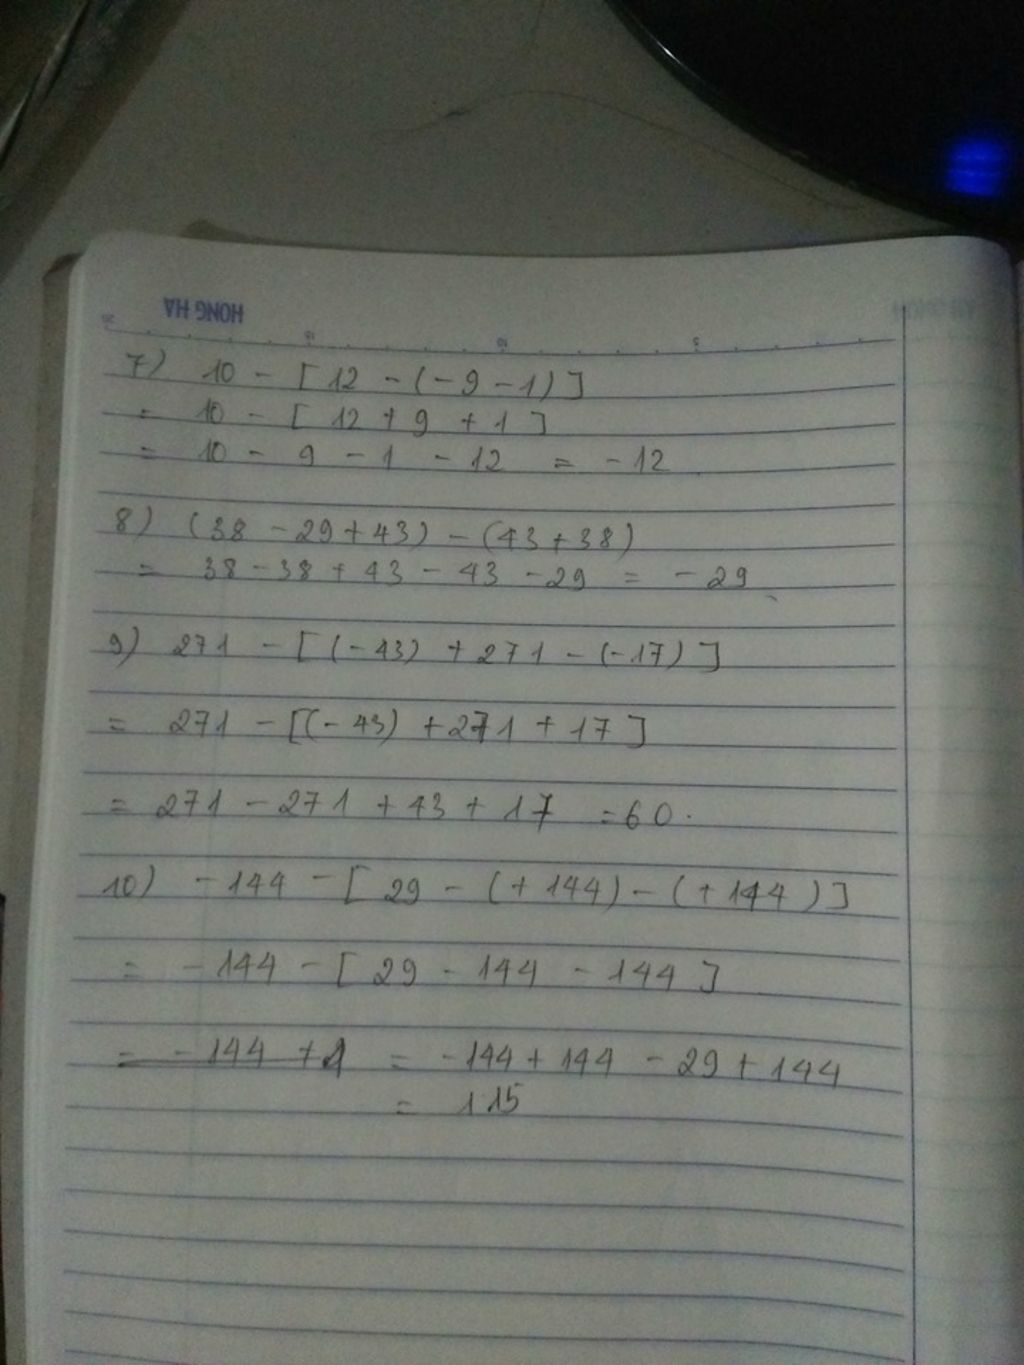 HONG HA
20 15 10 5
7) 10 - [ 12 - (- 9 - 1) ]
= 10 - [ 12 + 9 + 1 ]
= 10 - 9 - 1 - 12 = - 12
8) (38 - 29 + 43) - (43 + 38)
= 38 - 38 + 43 - 43 - 29 = - 29
9) 271 - [ (- 43) + 271 - (- 17) ]
= 271 - [(- 43) + 271 + 17 ]
= 271 - 271 + 43 + 17 = 60.
10) - 144 - [ 29 - (+ 144) - (+ 144) ]
= - 144 - [ 29 - 144 - 144 ]
= - 144 + 1 = - 144 + 144 - 29 + 144
= 115